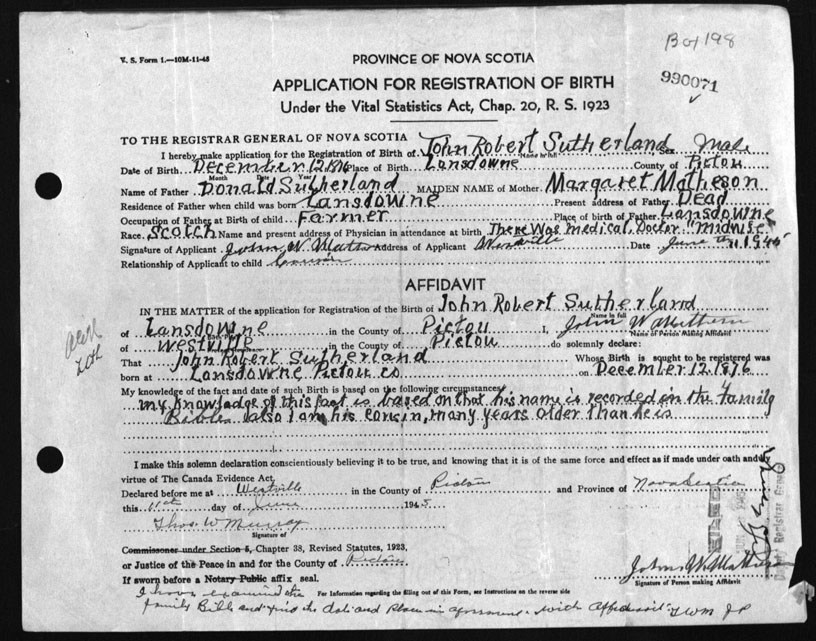 B of 198
V. S. Form 1.—10M-11-43
PROVINCE OF NOVA SCOTIA
990071
APPLICATION FOR REGISTRATION OF BIRTH
Under the Vital Statistics Act, Chap. 20, R. S. 1923
TO THE REGISTRAR GENERAL OF NOVA SCOTIA
I hereby make application for the Registration of Birth of John Robert Sutherland Sex Male
Name in full
Date of Birth December 12 1876 Place of Birth Lansdowne County of Pictou
Month Date Year
Name of Father Donald Sutherland MAIDEN NAME of Mother Margaret Matheson
Residence of Father when child was born Lansdowne Present address of Father Dead
Occupation of Father at Birth of child Farmer Place of birth of Father Lansdowne
Race Scotch Name and present address of Physician in attendance at birth There Was medical Doctor "Midwise"
Signature of Applicant John W. Matheson Address of Applicant Westville Date June 11 1945
Relationship of Applicant to child Cousin
AFFIDAVIT
IN THE MATTER of the application for Registration of the Birth of John Robert Sutherland
Name in full
of Lansdowne in the County of Pictou I, John W Matheson
Name of Person Making Affidavit
of Westville in the County of Pictou do solemnly declare:
That John Robert Sutherland Whose Birth is sought to be registered was
born at Lansdowne Pictou co on December 12. 1876
My knowledge of the fact and date of such Birth is based on the following circumstances
my knowledge of this fact is based on that his name is recorded in the family
Bible also I am his cousin, many years older than he is
I make this solemn declaration conscientiously believing it to be true, and knowing that it is of the same force and effect as if made under oath and by
virtue of The Canada Evidence Act.
Declared before me at Westville in the County of Pictou and Province of Nova Scotia
this 11th day of June 1945
Thos W Murray
Signature of
Commissoner under Section 5, Chapter 38, Revised Statutes, 1923,
or Justice of the Peace in and for the County of Pictou
John W. Matheson
Signature of Person making Affidavit
If sworn before a Notary Public affix seal.
For Information regarding the filling out of this Form, see Instructions on the reverse side
I have examined the
family Bible and find the date and place in agreement with Affidavit TWM JP
FILED
Deputy Registrar General